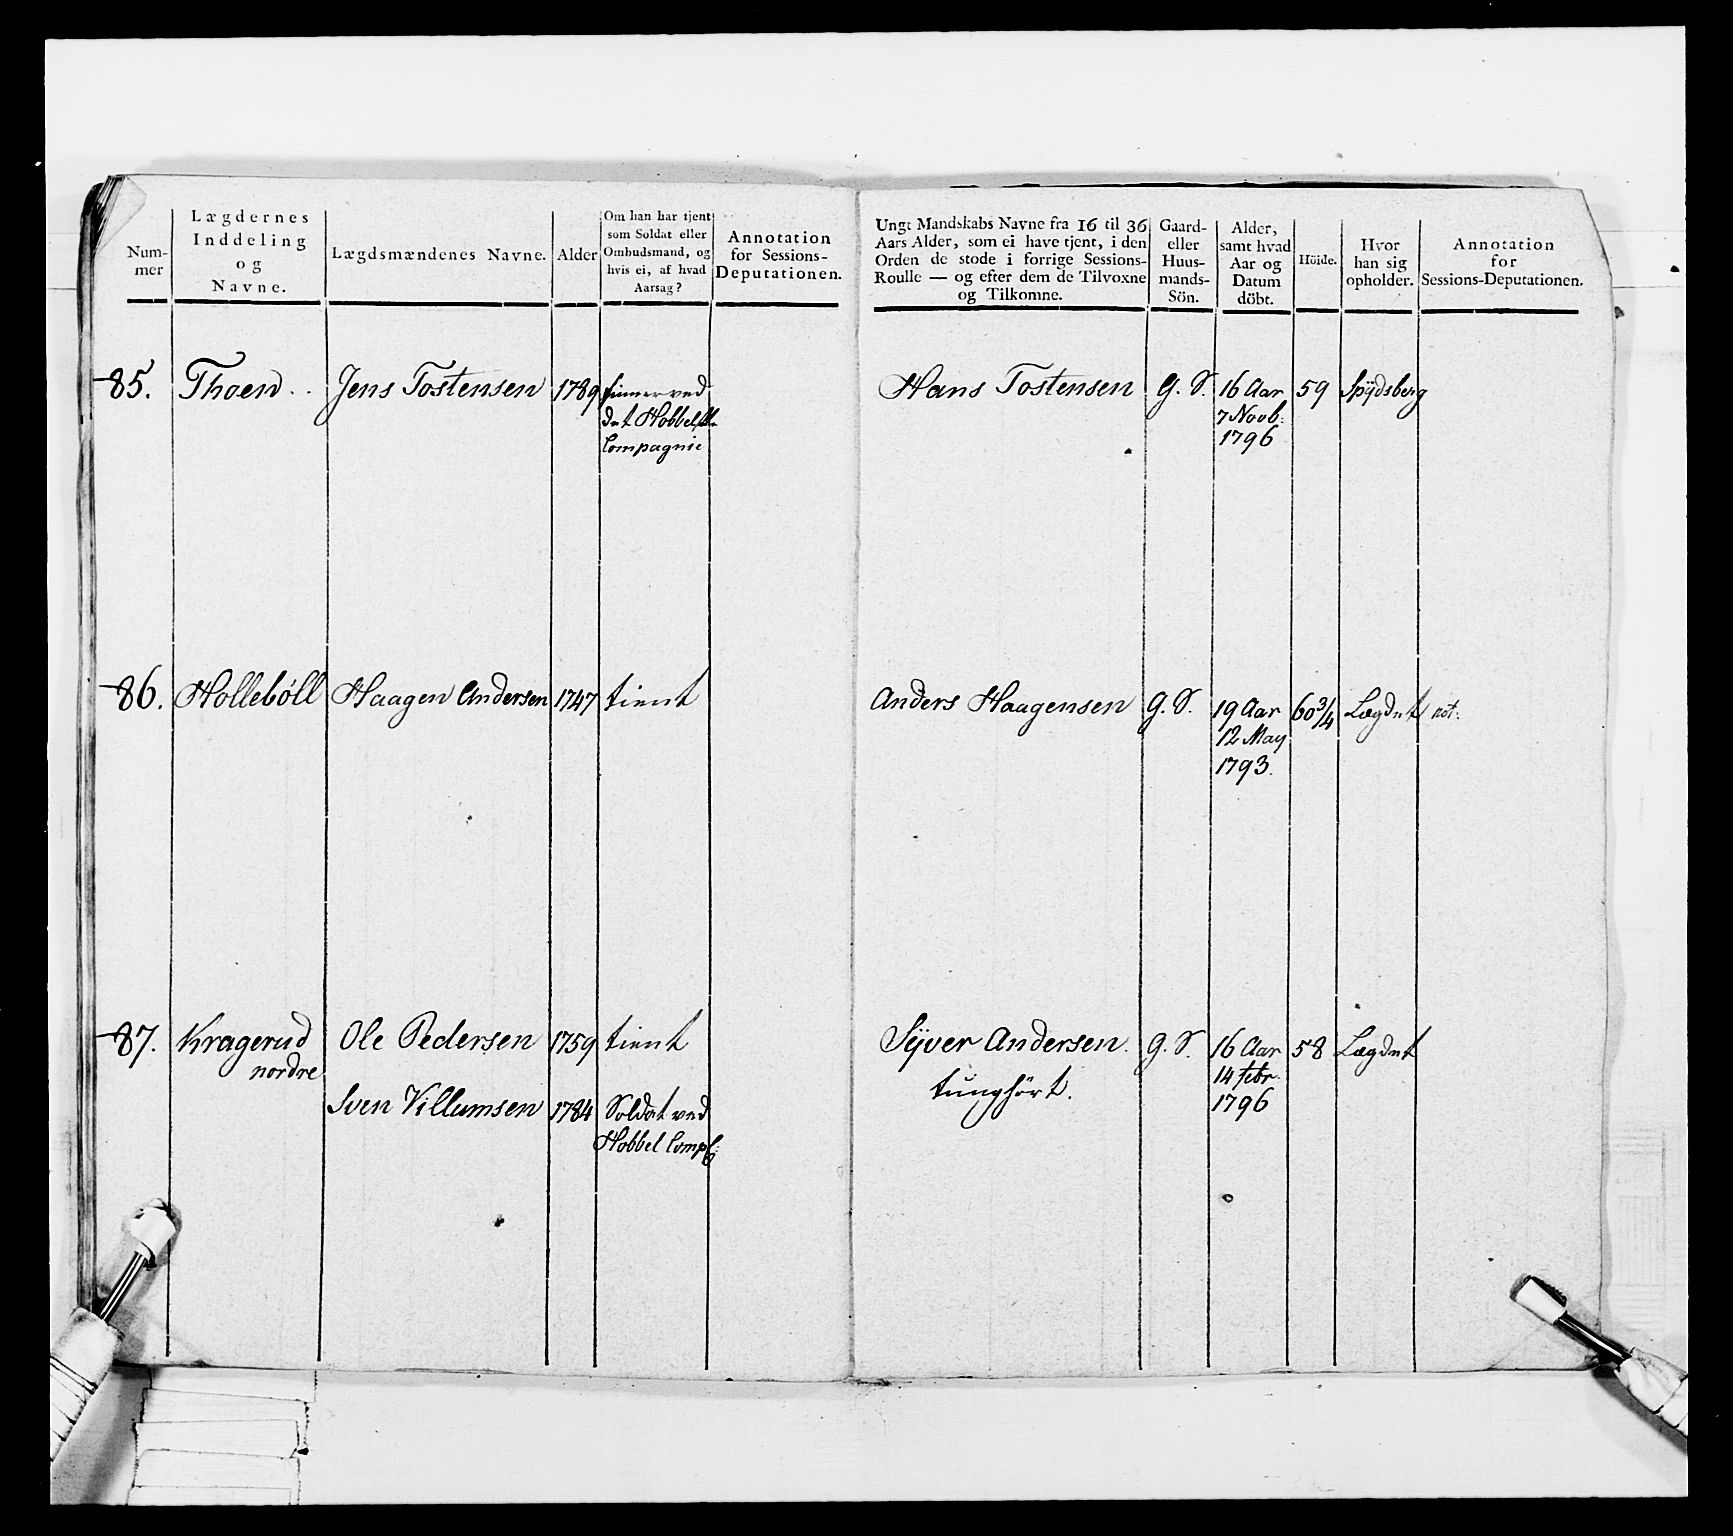 Num-
mer
Lægdernes
Inddeling
og
Navne.
Lægdsmændenes Navne.
Alder
Om han har tjent
som Soldat eller
Ombudsmand, og
hvis ei, af hvad
Aarsag?
Annotation
for Sessions-
Deputationen.
Ungt Mandskabs Navne fra 16 til 36
Aars Alder, som ei have tjent, i den
Orden de stode i forrige Sessions-
Roulle — og efter dem de Tilvoxne
og Tilkomne.
Gaard-
eller
Huus-
mands-
Sön.
Alder,
samt hvad
Aar og
Datum
döbt.
Höide.
Hvor
han sig
opholder.
Annotation
for
Sessions-Deputationen.
85. Thoen .. Jens Tostensen 1789 tienner ved
det Hobbelske
Compagnie
Hans Tostensen G. S. 16 Aar 59 Spÿdsberg
7 Novb:
1796
86. Holleböll Haagen Andersen 1747 tient
Anders Haagensen G. S. 19 Aar 60 3/4 Lægdet not:
12 May
1793.
87. Kragerud Ole Pedersen 1759 tient
nordre
Sven Villumsen 1784 Soldat ved
Hobbel Comp:
Sÿver Andersen. G. S. 16 Aar 58 Lægdet
tunghört. 14 febr.
1796